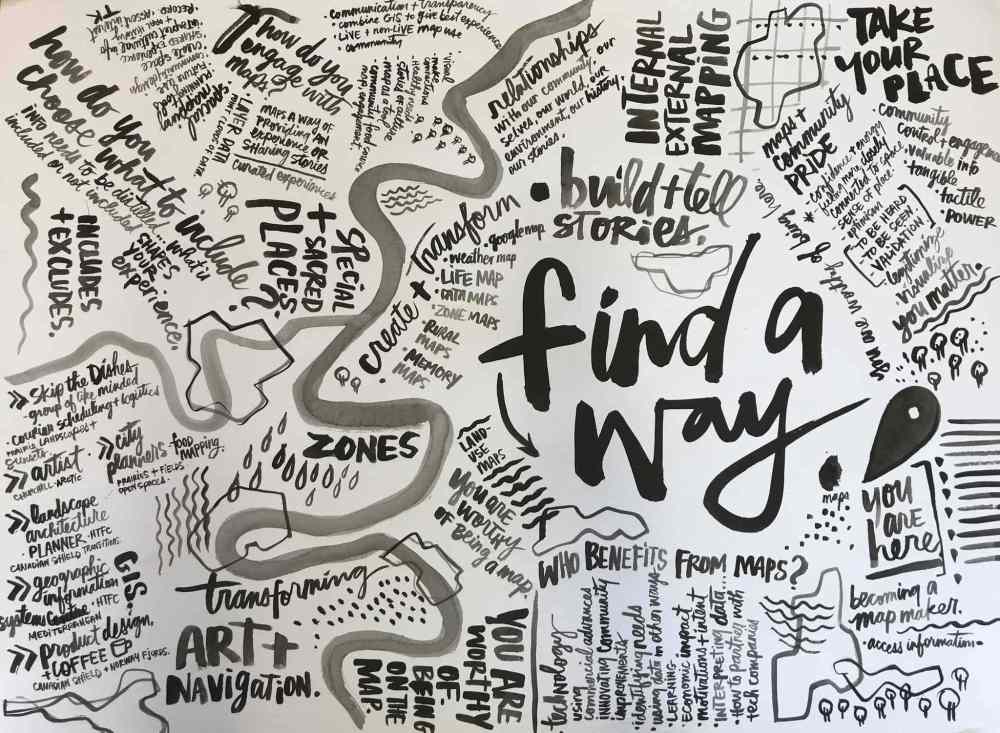 how do you
choose
what to include?
into needs to be distilled
included or not included
what is
SHAPES
YOUR
experience.
INCLUDES
+ EXCLUDES.
how do you
engage with
maps?
LAYER DATA
MAPS A WAY OF
PROVIDING AN
EXPERIENCE OR
SHARING STORIES
curated experiences
communication + transparency
• combine GIS to give best experience
• LIVE + non-LIVE map use
• community
SPECIAL
+ SACRED
PLACES.
relationships
with our community,
selves, our world, our
environment, our history,
our stories.
INTERNAL
EXTERNAL
MAPPING
TAKE
YOUR
PLACE
maps +
community
PRIDE
community
control + engagement
• valuable info
• tangible
• tactile
• POWER
• confidence + energy
• sense of place
• optimism
TO BE HEARD
TO BE SEEN
VALIDATION
legitimize
+ humanize
you matter.
you are worthy of being here.
• build + tell
STORIES.
create + transform
• google map
• weather map
• LIFE MAP
• DATA MAPS
• ZONE MAPS
• RURAL
MAPS
• MEMORY
MAPS
find a
way
ZONES
LAND-
USE
MAPS
you are
worthy
of
being a map.
maps
you
are
here
» Skip the Dishes
- group of like minded
• courier scheduling + logistics
PRAIRIE LANDSCAPES +
SUNSETS
» artist.
CHURCHILL - ARCTIC
» city
planners • food
mapping.
PRAIRIES + FIELDS
OPEN SPACES.
» landscape
architecture
• PLANNER • HTFC
CANADIAN SHIELD TRANSITIONS.
» geographic
information
systems • HTFC
MEDITERRANEAN
GIS.
» product design.
+ COFFEE
CANADIAN SHIELD + NORWAY FJORDS.
transforming
ART +
NAVIGATION.
YOU ARE
WORTHY
OF
BEING
ON THE
MAP.
WHO BENEFITS FROM MAPS?
technology
using
commercial advanced
INNOVATING COMMUNITY
improvements
• identifying needs
• using data in other ways
• LEARNING
• Economic impact
• motivations + intent
• INTERPRETING data...
• How to partner with
tech companies
becoming a
map maker.
• access information •